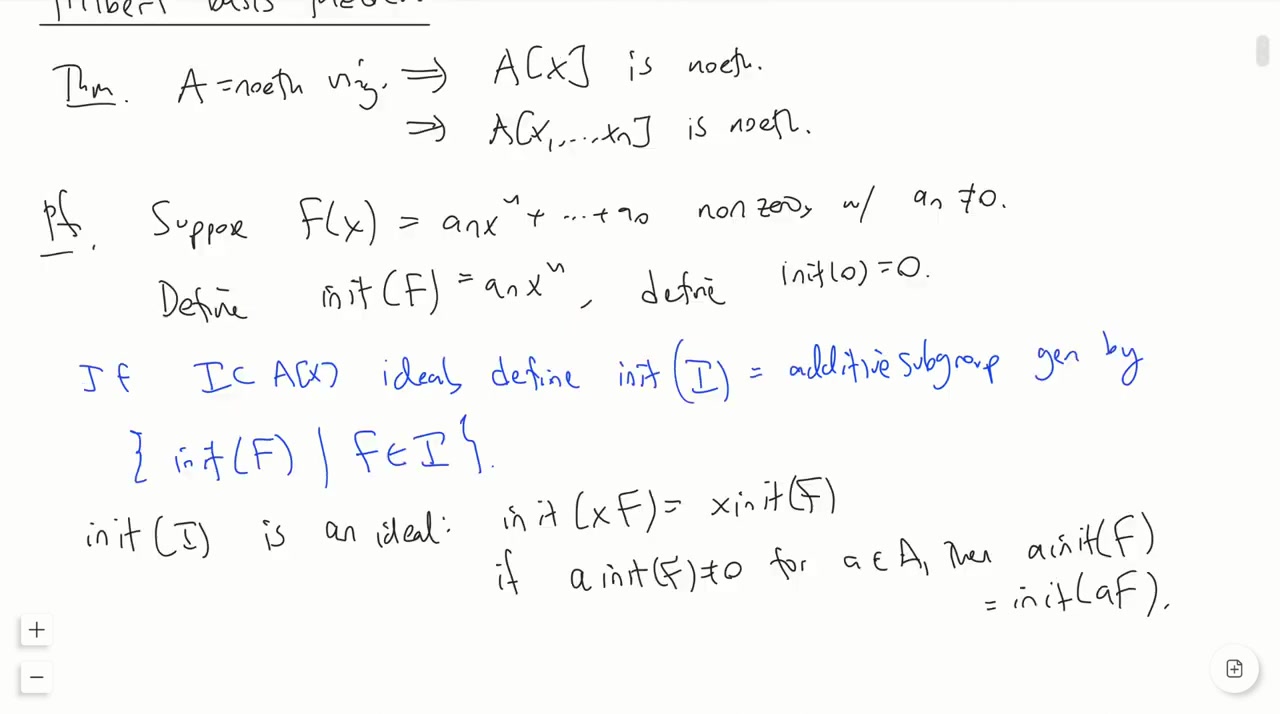 Hilbert basis theorem
Thm. A = noeth ring. ⇒ A[x] is noeth.
⇒ A[x₁,...xₙ] is noeth.
Pf. Suppose F(x) = aₙxⁿ + ... + a₀ nonzero, w/ aₙ ≠ 0.
Define init(F) = aₙxⁿ, define init(0) = 0.
If I ⊂ A[x] ideal, define init(I) = additive subgroup gen by
{ init(F) | F ∈ I }.
init(I) is an ideal: init(xF) = x init(F)
if a init(F) ≠ 0 for a ∈ A, then a init(F)
= init(aF).